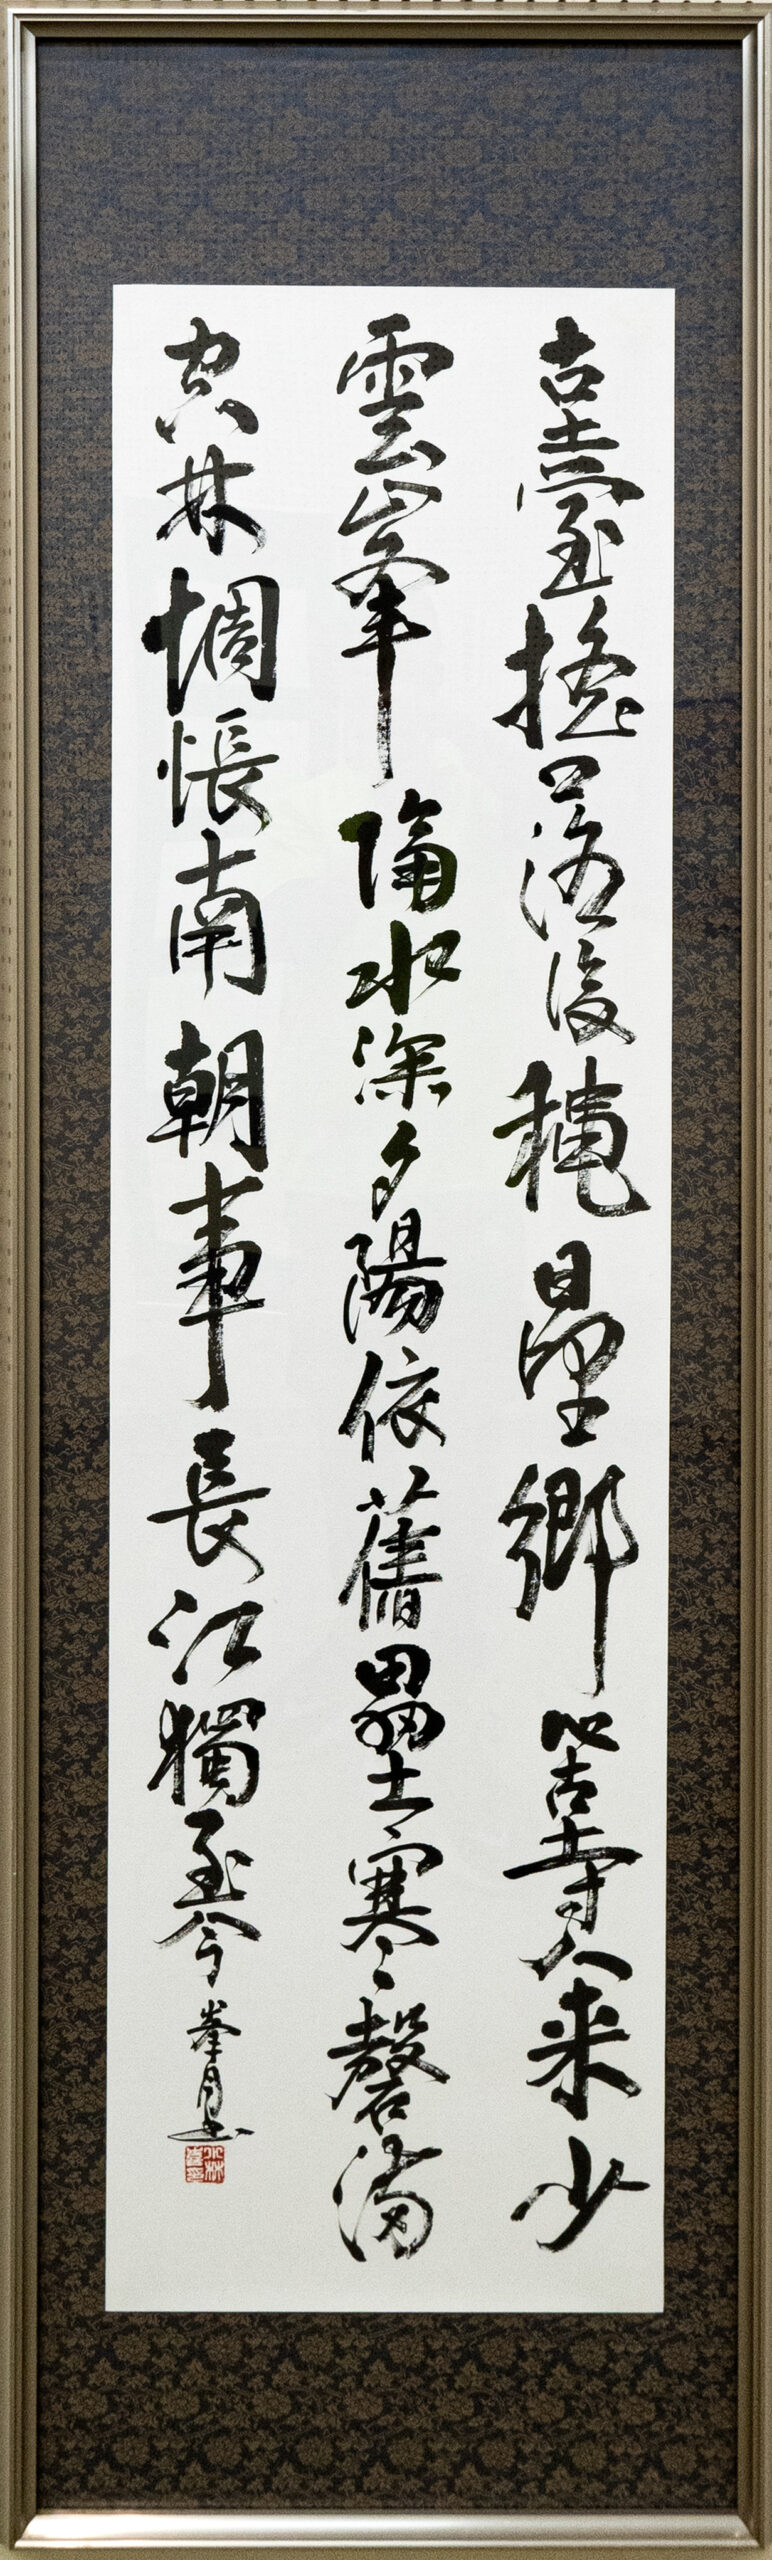 古臺搖落後穐日望鄉心古寺人来少
雲峯隔水深夕陽依舊壘寒磬満
空林惆悵南朝事長江獨至今 峯月書